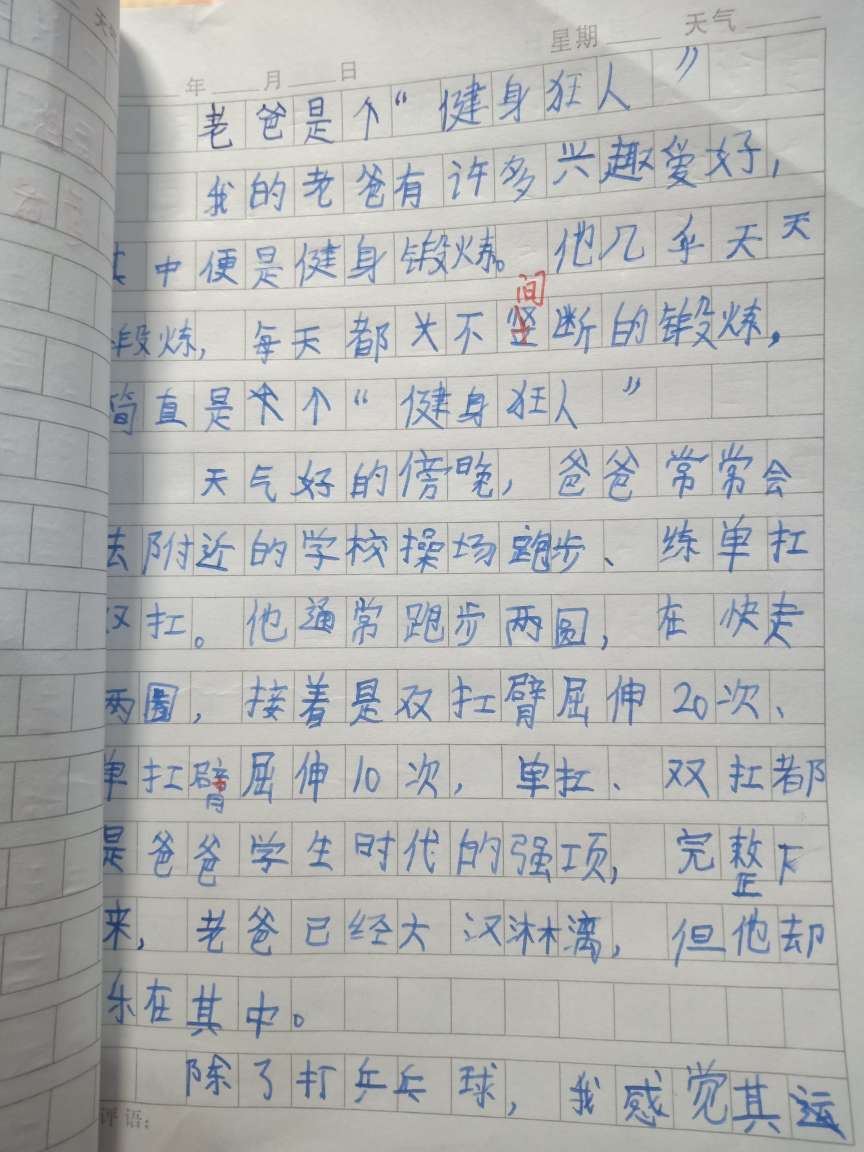 年 月 日 星期 天气
老爸是个“健身狂人”
我的老爸有许多兴趣爱好，
其中便是健身锻炼。他几乎天天
锻炼，每天都关不间断的锻炼，
简直是个“健身狂人”
天气好的傍晚，爸爸常常会
去附近的学校操场跑步、练单扛
双扛。他通常跑步两圆，在快走
两圈，接着是双扛臂屈伸20次、
单扛臂屈伸10次，单扛、双扛都
是爸爸学生时代的强项，完整下
来，老爸已经大汉淋漓，但他却
乐在其中。
除了打乒乓球，我感觉其运
评语：